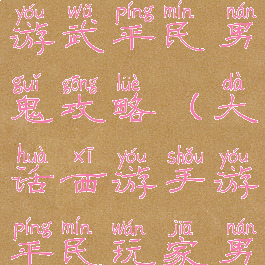 yóu wǔ píng mín nán
游武平民男
guǐ gōng lüè dà
鬼攻略（大
huà xī yóu shǒu yóu
话西游手游
píng mín wán jiā nán
平民玩家男